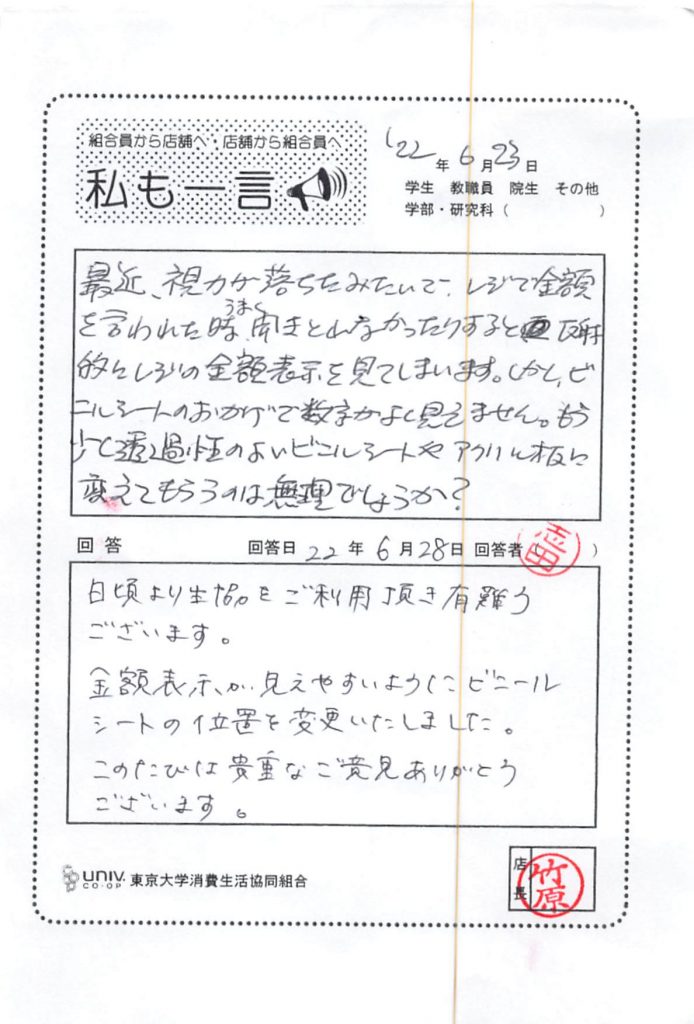 組合員から店舗へ・店舗から組合員へ
私も一言
'22年6月23日
学生 教職員 院生 その他
学部・研究科( )
最近、視力が落ちたみたいで、レジで金額
を言われた時、うまく聞きとれなかったりすると反射
的にレジの金額表示を見てしまいます。しかし、ビ
ニルシートのおかげで数字がよく見えません。もう
少し透過性のよいビニルシートやアクリル板に
変えてもらうのは無理でしょうか?
回答 回答日 22年6月28日 回答者( )
日頃より生協をご利用頂き有難う
ございます。
金額表示が見えやすいようにビニール
シートの位置を変更いたしました。
このたびは貴重なご意見ありがとう
ございます。
UNIV. CO-OP 東京大学消費生活協同組合
店長 竹原